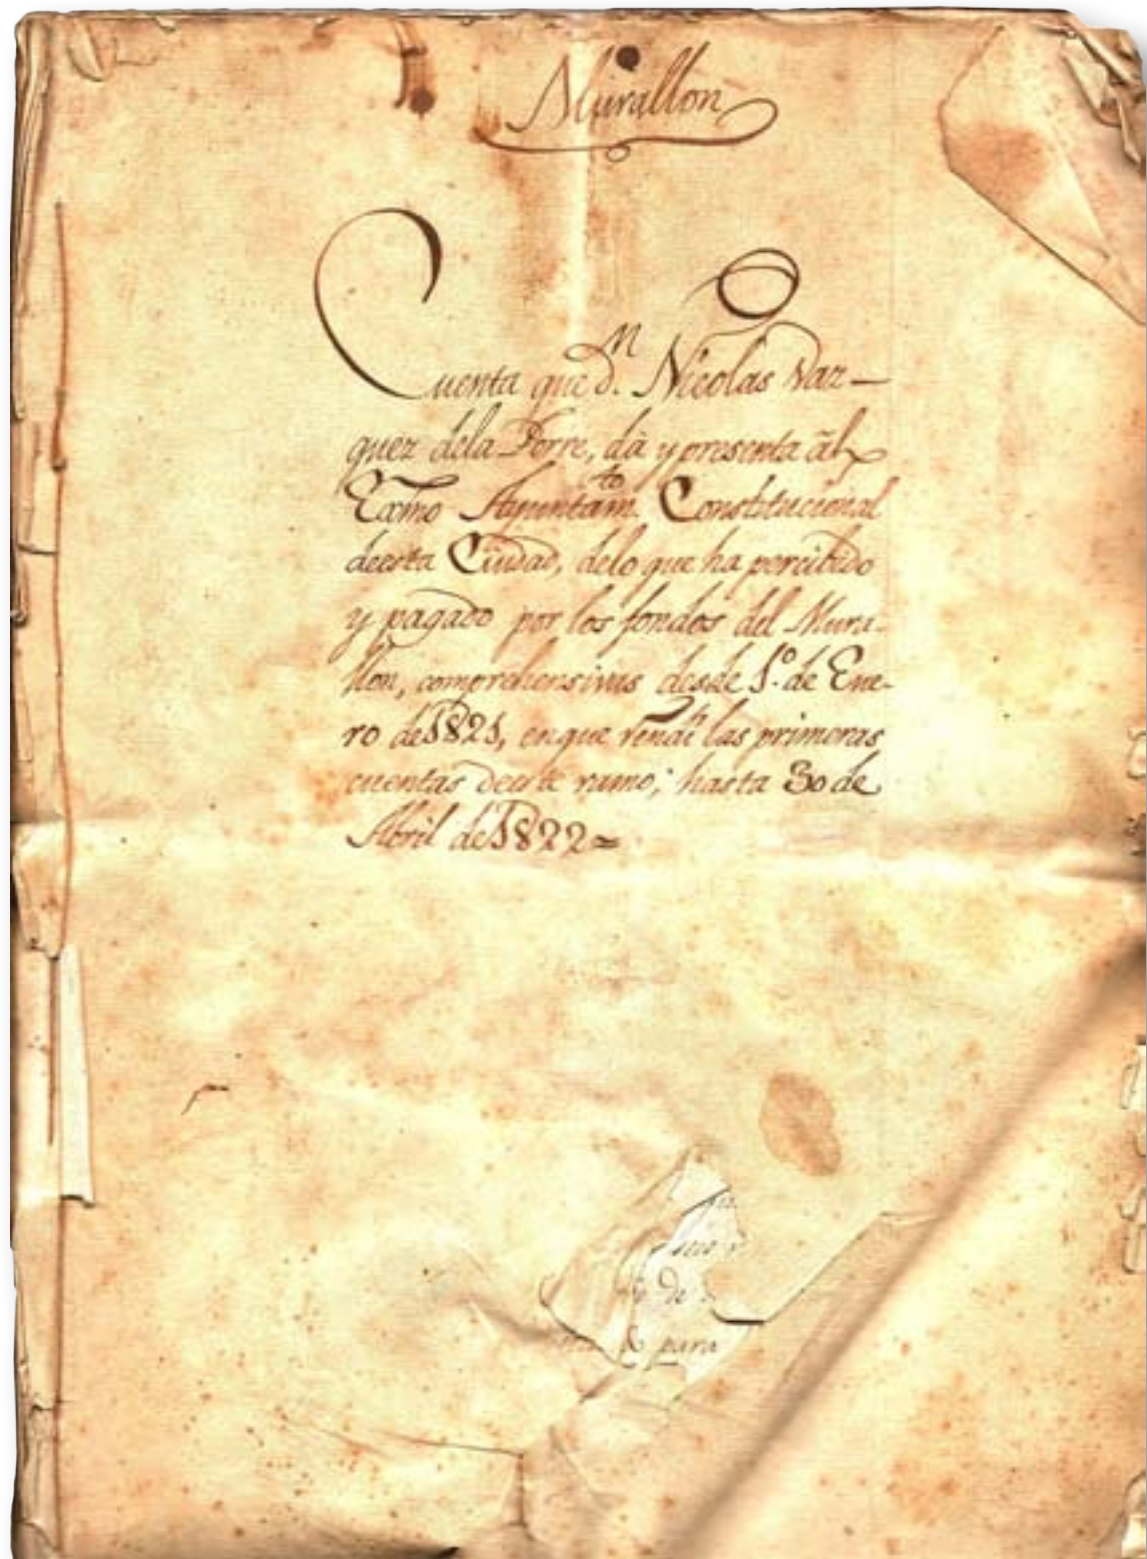 Murallon
Cuenta que d.n Nicolas Vaz-
quez dela Torre, dà y presenta ãl
Exmo Ayuntam.to Constitucional
deesta Ciudad, delo que ha percibido
y pagado por los fondos del Mura-
llon, comprehensivas desde 1.º de Ene-
ro de 1821, enque rendi las primeras
cuentas deeste ramo; hasta 30 de
Abril de 1822=
de
para